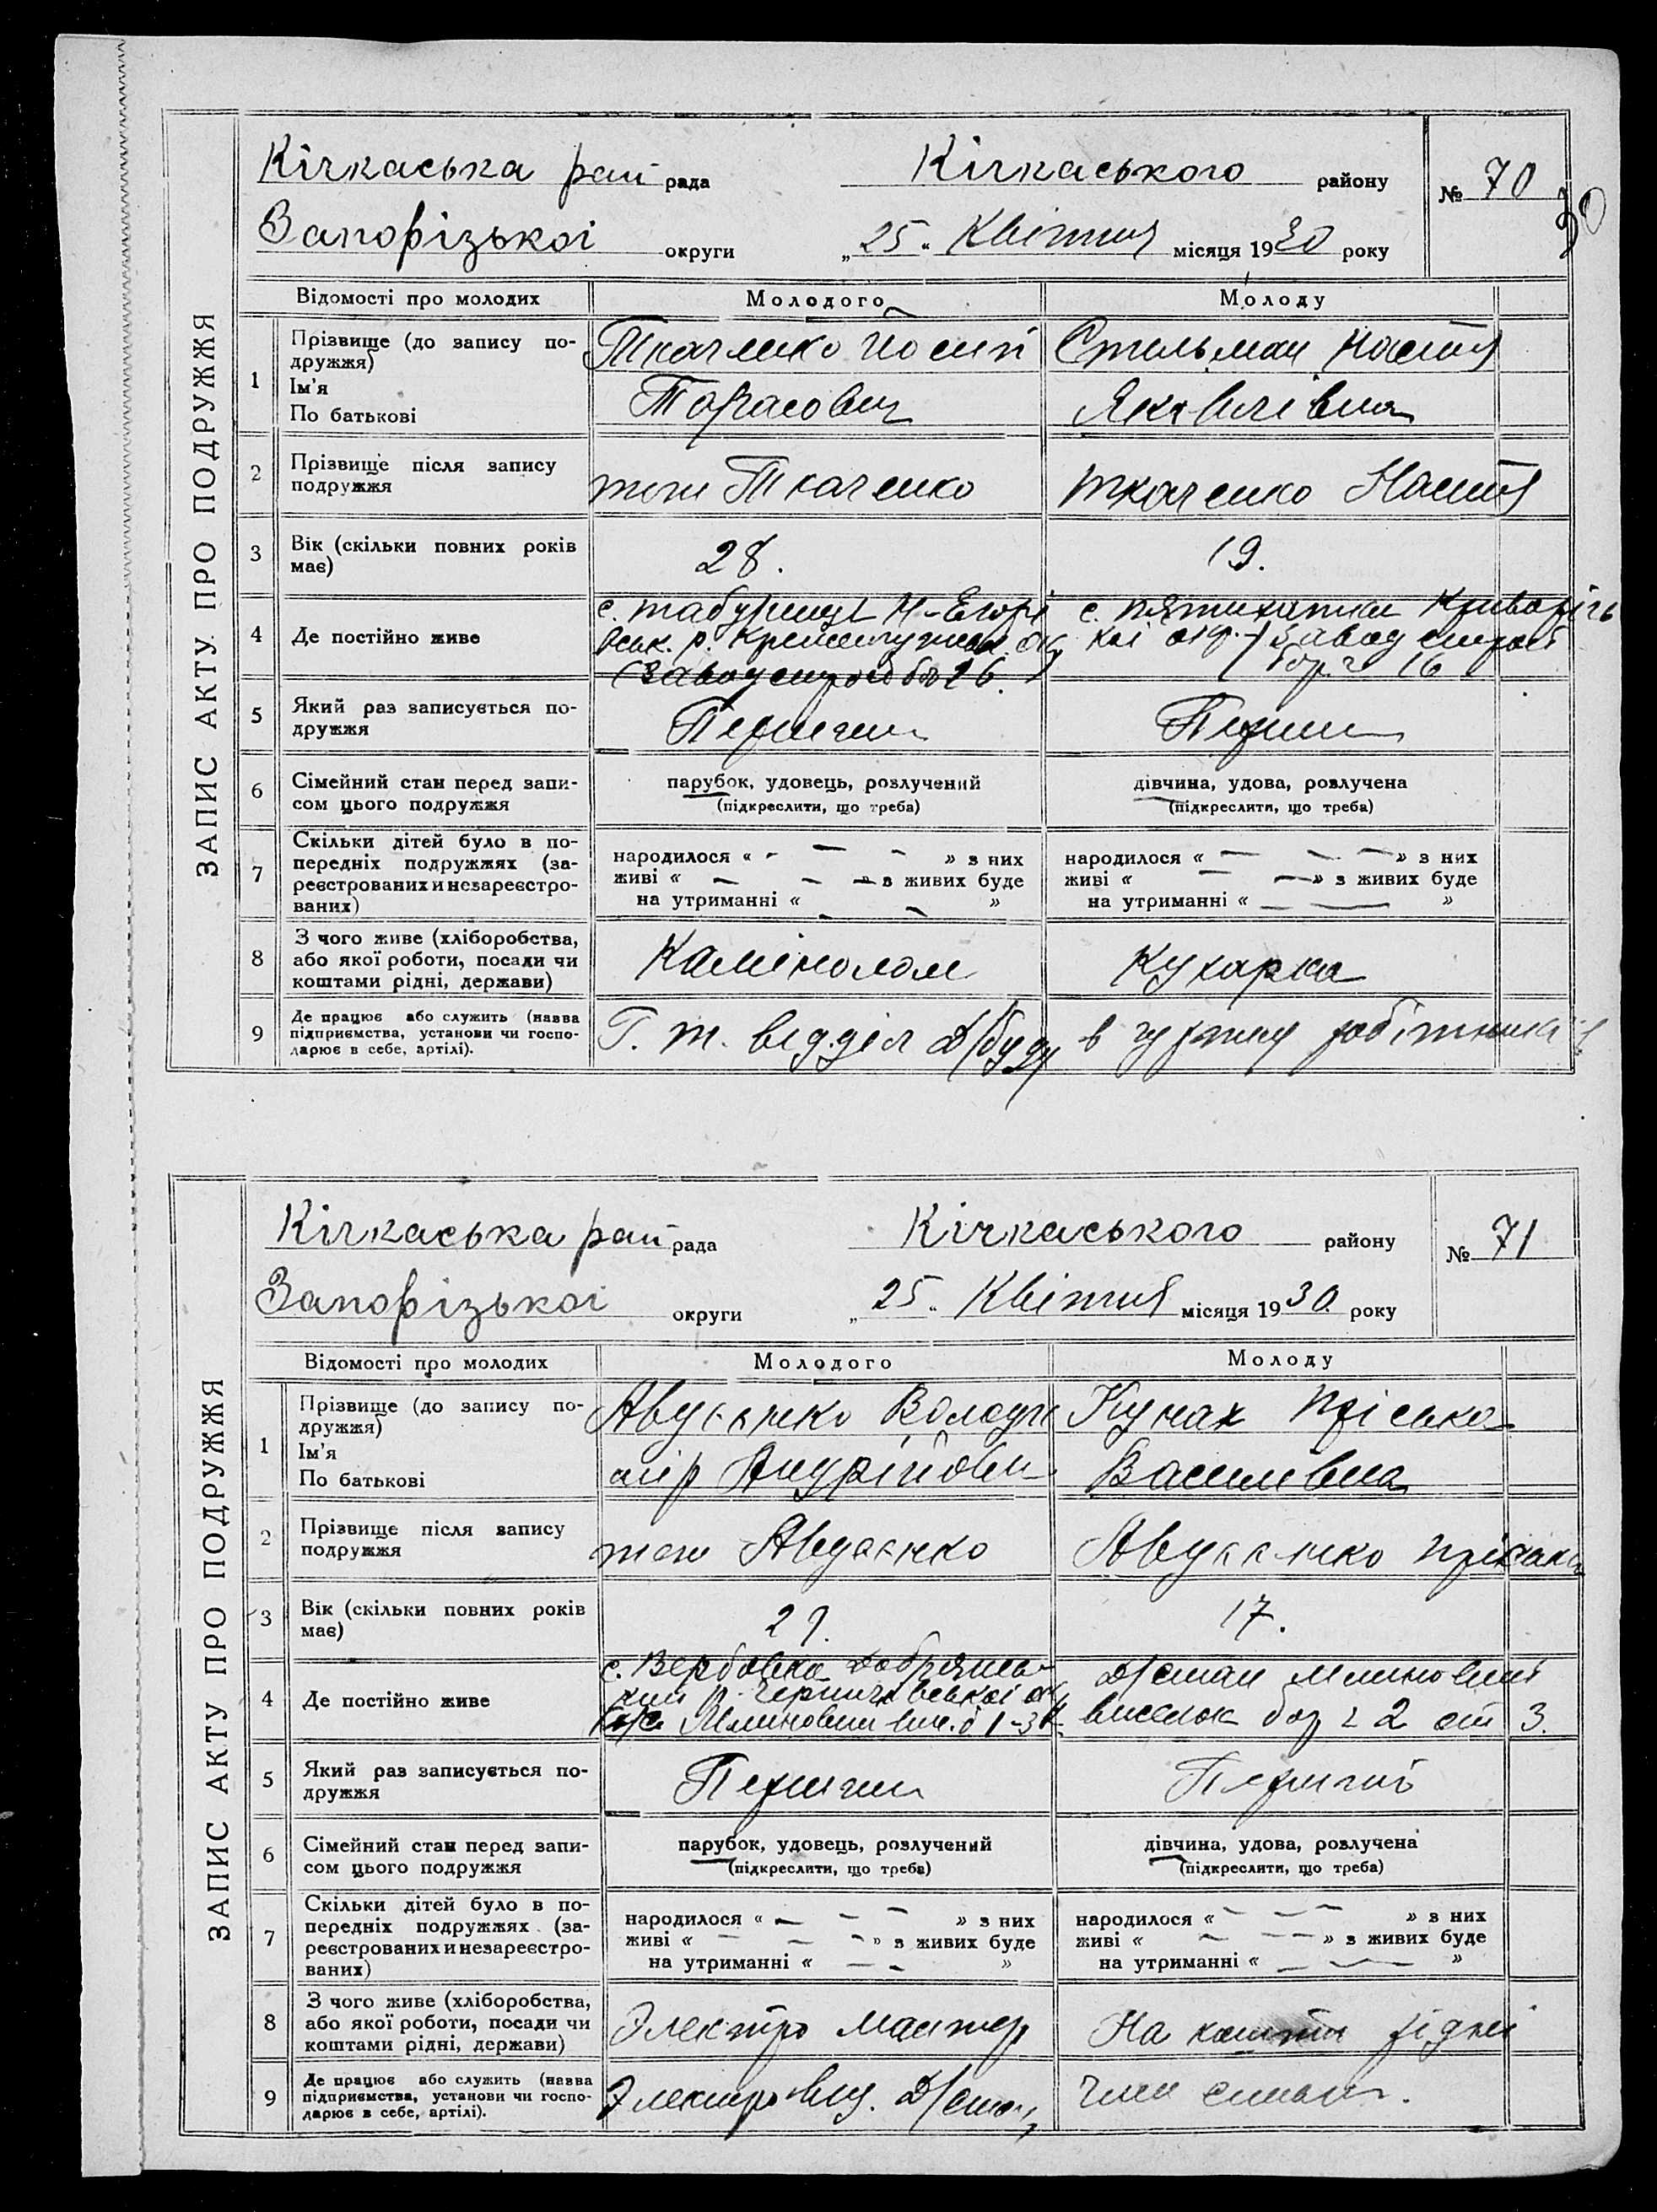 ЗАПИС АКТУ ПРО ПОДРУЖЖЯ
Кічкаська рай рада Кічкаського району № 70
30
Запорізької округи „25“ Квітня місяця 1930 року
Відомості про молодих Молодого Молоду
1 Прізвище (до запису по-
дружжя)
Ім'я
По батькові
Ткаченко Йосип
Тарасович
Стельмах Настя
Яковлівна
2 Прізвище після запису
подружжя
теж Ткаченко
Ткаченко Настя
3 Вік (скільки повних років
має)
28.
19.
4 Де постійно живе
с. Табурище Н-Егорі
вськ. р. Кременчуцької ок
с. Пятихатки Криворізь
кої окр.
16
5 Який раз записується по-
дружжя
Перший
Перший
6 Сімейний стан перед запи-
сом цього подружжя
парубок, удовець, розлучений
(підкреслити, що треба)
дівчина, удова, розлучена
(підкреслити, що треба)
7 Скільки дітей було в по-
передніх подружжях (за-
реєстрованих и незареєстро-
ваних)
народилося « — — — » з них
живі « — — — » з живих буде
на утриманні « — — »
народилося « — — — » з них
живі « — — » з живих буде
на утриманні « — — »
8 З чого живе (хліборобства,
або якої роботи, посади чи
коштами рідні, держави)
Камінолом
Кухарка
9 Де працює або служить (назва
підприємства, установи чи госпо-
дарює в себе, артілі).
Г. т. відділ Д/буду
в гуртку робітників
ЗАПИС АКТУ ПРО ПОДРУЖЖЯ
Кічкаська рай рада Кічкаського району № 71
Запорізької округи „25“ Квітня місяця 1930 року
Відомості про молодих Молодого Молоду
1 Прізвище (до запису по-
дружжя)
Ім'я
По батькові
Авдєєнко Володи
мір Андрійович
Кунах Пріська
Василівна
2 Прізвище після запису
подружжя
теж Авдєєнко
Авдєєнко Пріська
3 Вік (скільки повних років
має)
17.
4 Де постійно живе
с. Вербовка Добрянсь-
кий р. Чернигівської ок
Млиновий вис.
Млиновий
виселок 2 3.
5 Який раз записується по-
дружжя
Перший
Перший
6 Сімейний стан перед запи-
сом цього подружжя
парубок, удовець, розлучений
(підкреслити, що треба)
дівчина, удова, розлучена
(підкреслити, що треба)
7 Скільки дітей було в по-
передніх подружжях (за-
реєстрованих и незареєстро-
ваних)
народилося « — — — » з них
живі « — — — » з живих буде
на утриманні « — — »
народилося « — — — » з них
живі « — — — » з живих буде
на утриманні « — — »
8 З чого живе (хліборобства,
або якої роботи, посади чи
коштами рідні, держави)
Электро Монтер
На кошти рідні
9 Де працює або служить (назва
підприємства, установи чи госпо-
дарює в себе, артілі).
Электро від.